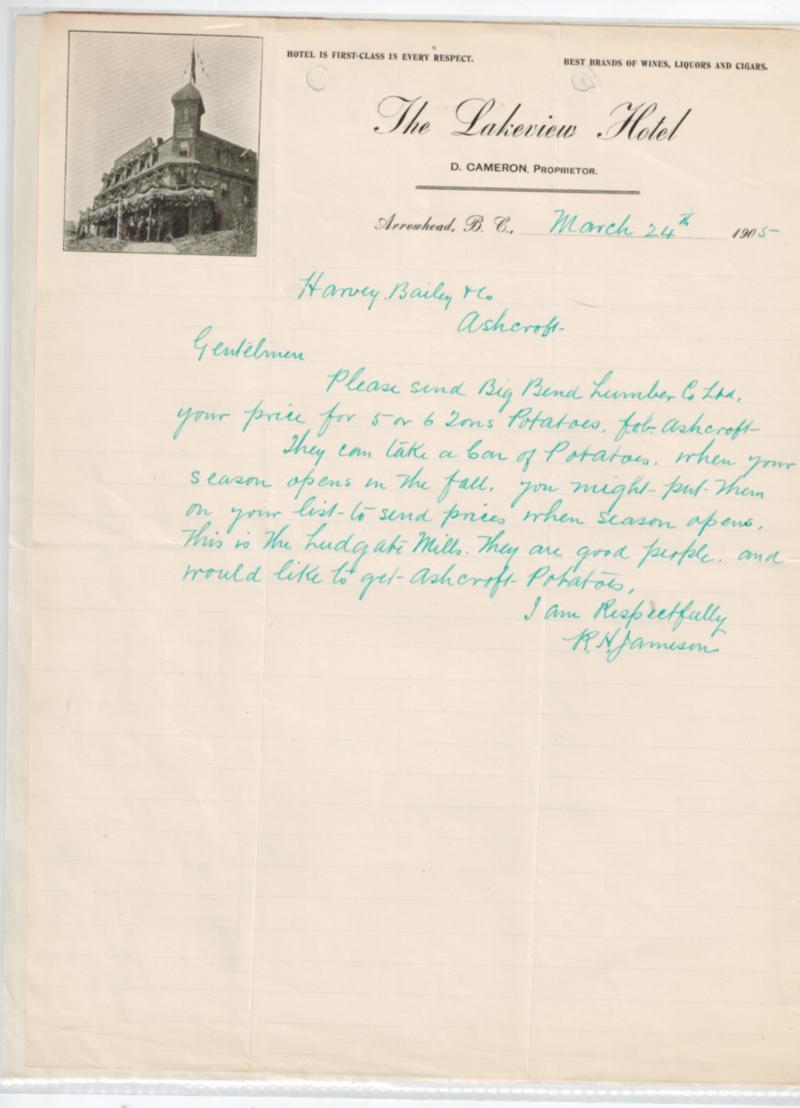 HOTEL IS FIRST-CLASS IN EVERY RESPECT.
BEST BRANDS OF WINES, LIQUORS AND CIGARS.
The Lakeview Hotel
D. CAMERON, PROPRIETOR.
Arrowhead, B. C., March 24th 1905
Harvey. Bailey & Co
Ashcroft
Gentelmen
Please send Big Bend Lumber Co Ltd,
your price for 5 or 6 Tons Potatoes. fob. Ashcroft
They can take a Car of Potatoes. when your
season opens in the fall. you might put them
on your list to send prices when season opens.
This is the Ludgate Mills. They are good people. and
would like to get Ashcroft Potatoes,
I am Respectfully
R.H. Jameson